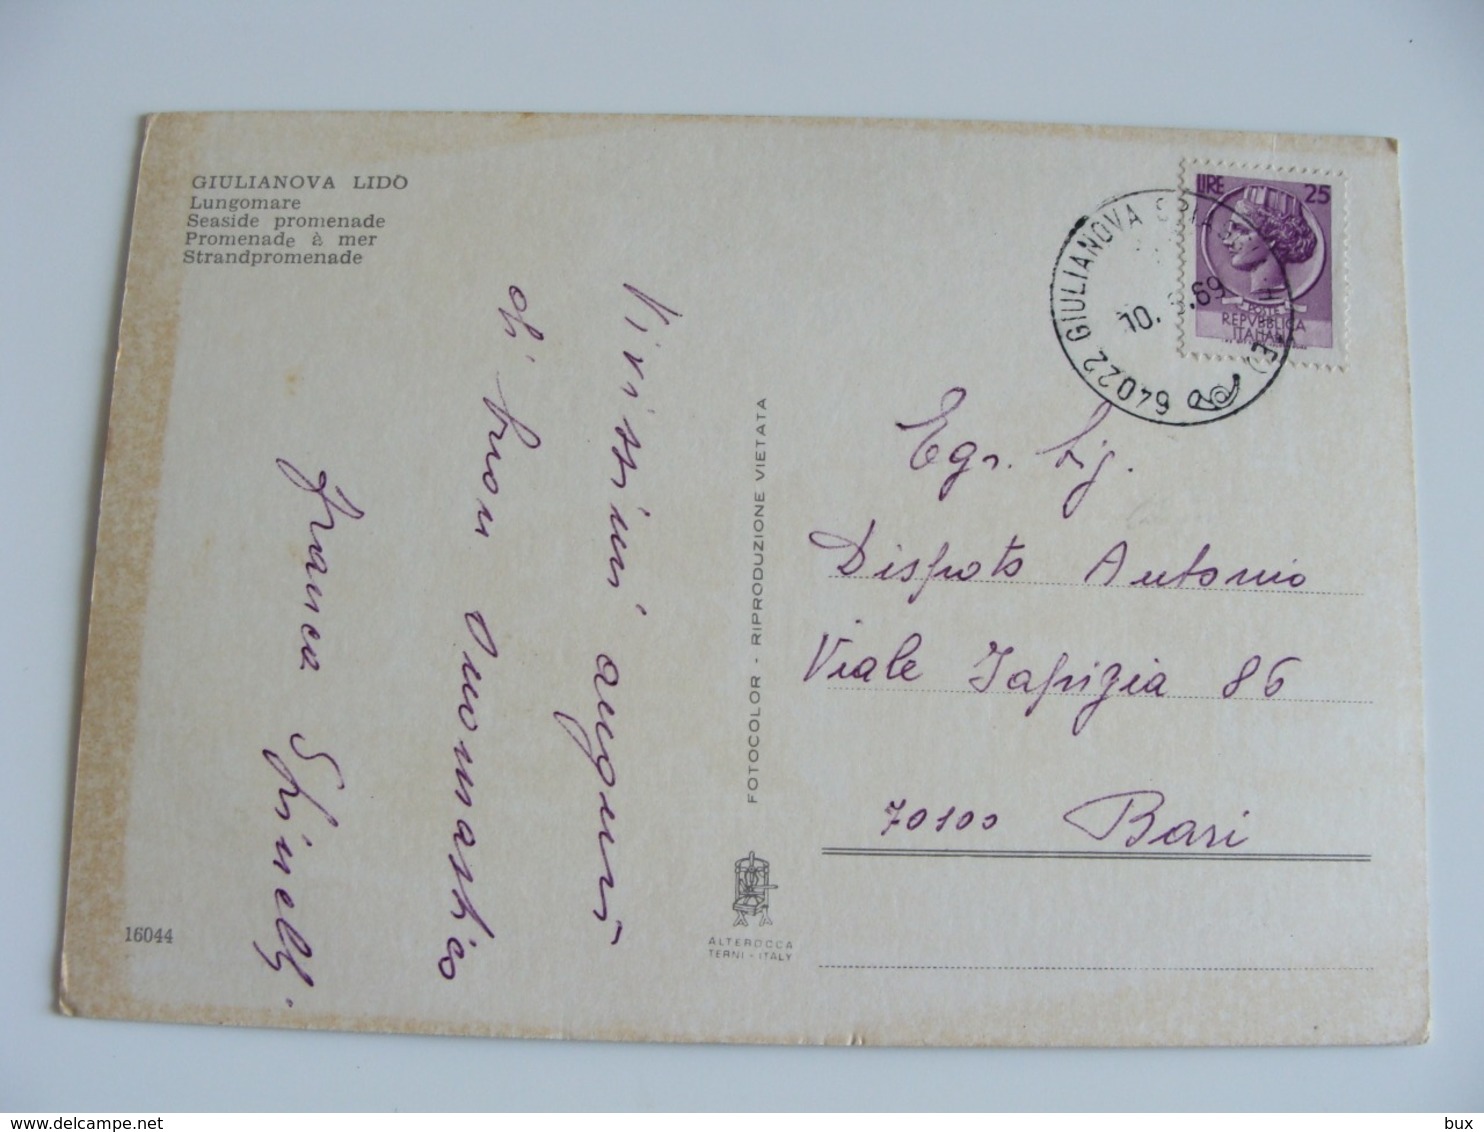 GIULIANOVA LIDO
Lungomare
Seaside promenade
Promenade à mer
Strandpromenade
Vivissimi auguri
di buon onomastico
Franca
16044
FOTOCOLOR - RIPRODUZIONE VIETATA
ALTEROCCA
TERNI - ITALY
LIRE 25
POSTE
REPVBBLICA
ITALIANA
64022 GIULIANOVA
10. .69
Egr. Sig.
Dispoto Antonio
Viale Japigia 86
70100 Bari
bux